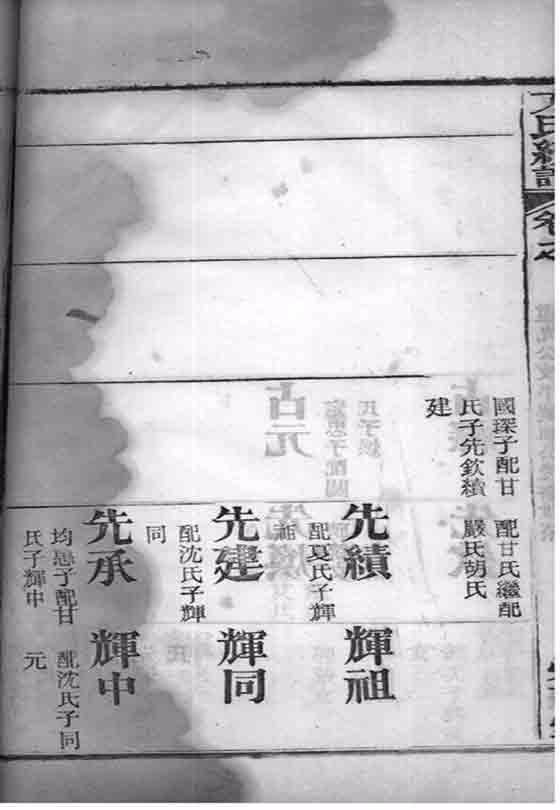 卷之
國琛子配甘
氏子先欽績
建
配甘氏繼配
嚴氏胡氏
先績
配夏氏子輝
祖
先建
配沈氏子輝
同
先承
均子配甘
氏子輝中
輝祖
輝同
輝中
配沈氏子同
元